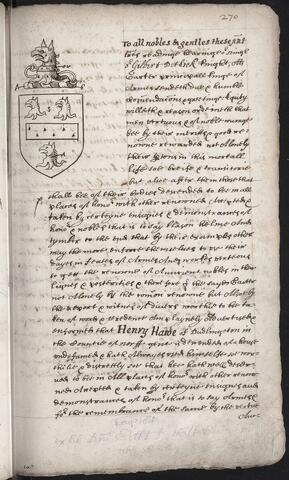 270
To all nobles & gentles these p'nt
l'res readinge hearinge or seinge
Sr Gilbert Dethick Knight, als
Garter principall kinge of
Armes sendeth due & humble
comendacons & greetinge Equity
willeth & reason ordeineth that
men vertuous & of noble courage
bee by their meritts & good re=
nowne rewarded not alonly
their p'sons in this mortall
life soe breife & transitorie
but also after them those that
shall bee of their bodies descended to be in all
places of honor with other renowned Accepted &
taken by certeyne ensignes & demonstrances of
honor & nobles that is to say blazon helme And
tymber to the end that by their examples other
may the more enforce themselves to use their
dayes in feates of Armes And workes vertuous
to gett the renowne of Auncient nobles in their
lignes & posterities & therefore I the sayd Garter
not Alonly by the comon renowne but Also by
the report & witnes of divers worthie to be ta=
ken of word & credence Am playnly Advertised &
enformed that Henry Harde of Dudlington in
the Countie of norff: gent is descended of a house
undefamed & hath Alwayes used himselfe soe wor=
thilie & discreetly soe that hee hath well deser=
ved to be in All places of honor with other renow=
ned Accepted & taken by certeyne ensignes and
demonstrances of honor that is to say Armes &
for the remembrance of the same by the vertue